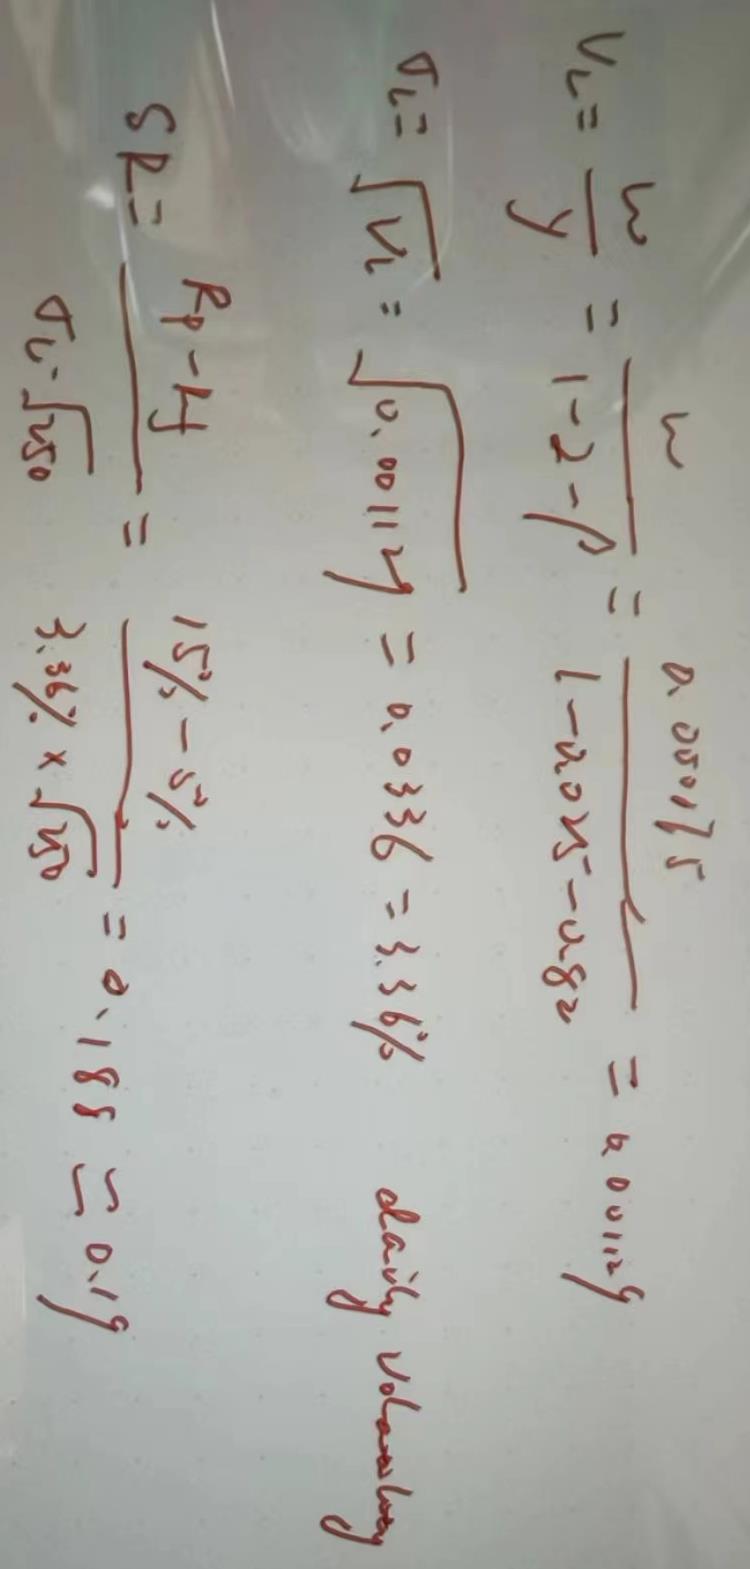 V_L = w/γ = w/(1-α-β) = 0.000175/(1-0.025-0.82) = 0.001129
σ_L = √V_L = √0.001129 = 0.0336 = 3.36% daily volatility
SR = (Rp - rf)/(σ_L·√250) = (15% - 5%)/(3.36% × √250) = 0.188 ≌ 0.19